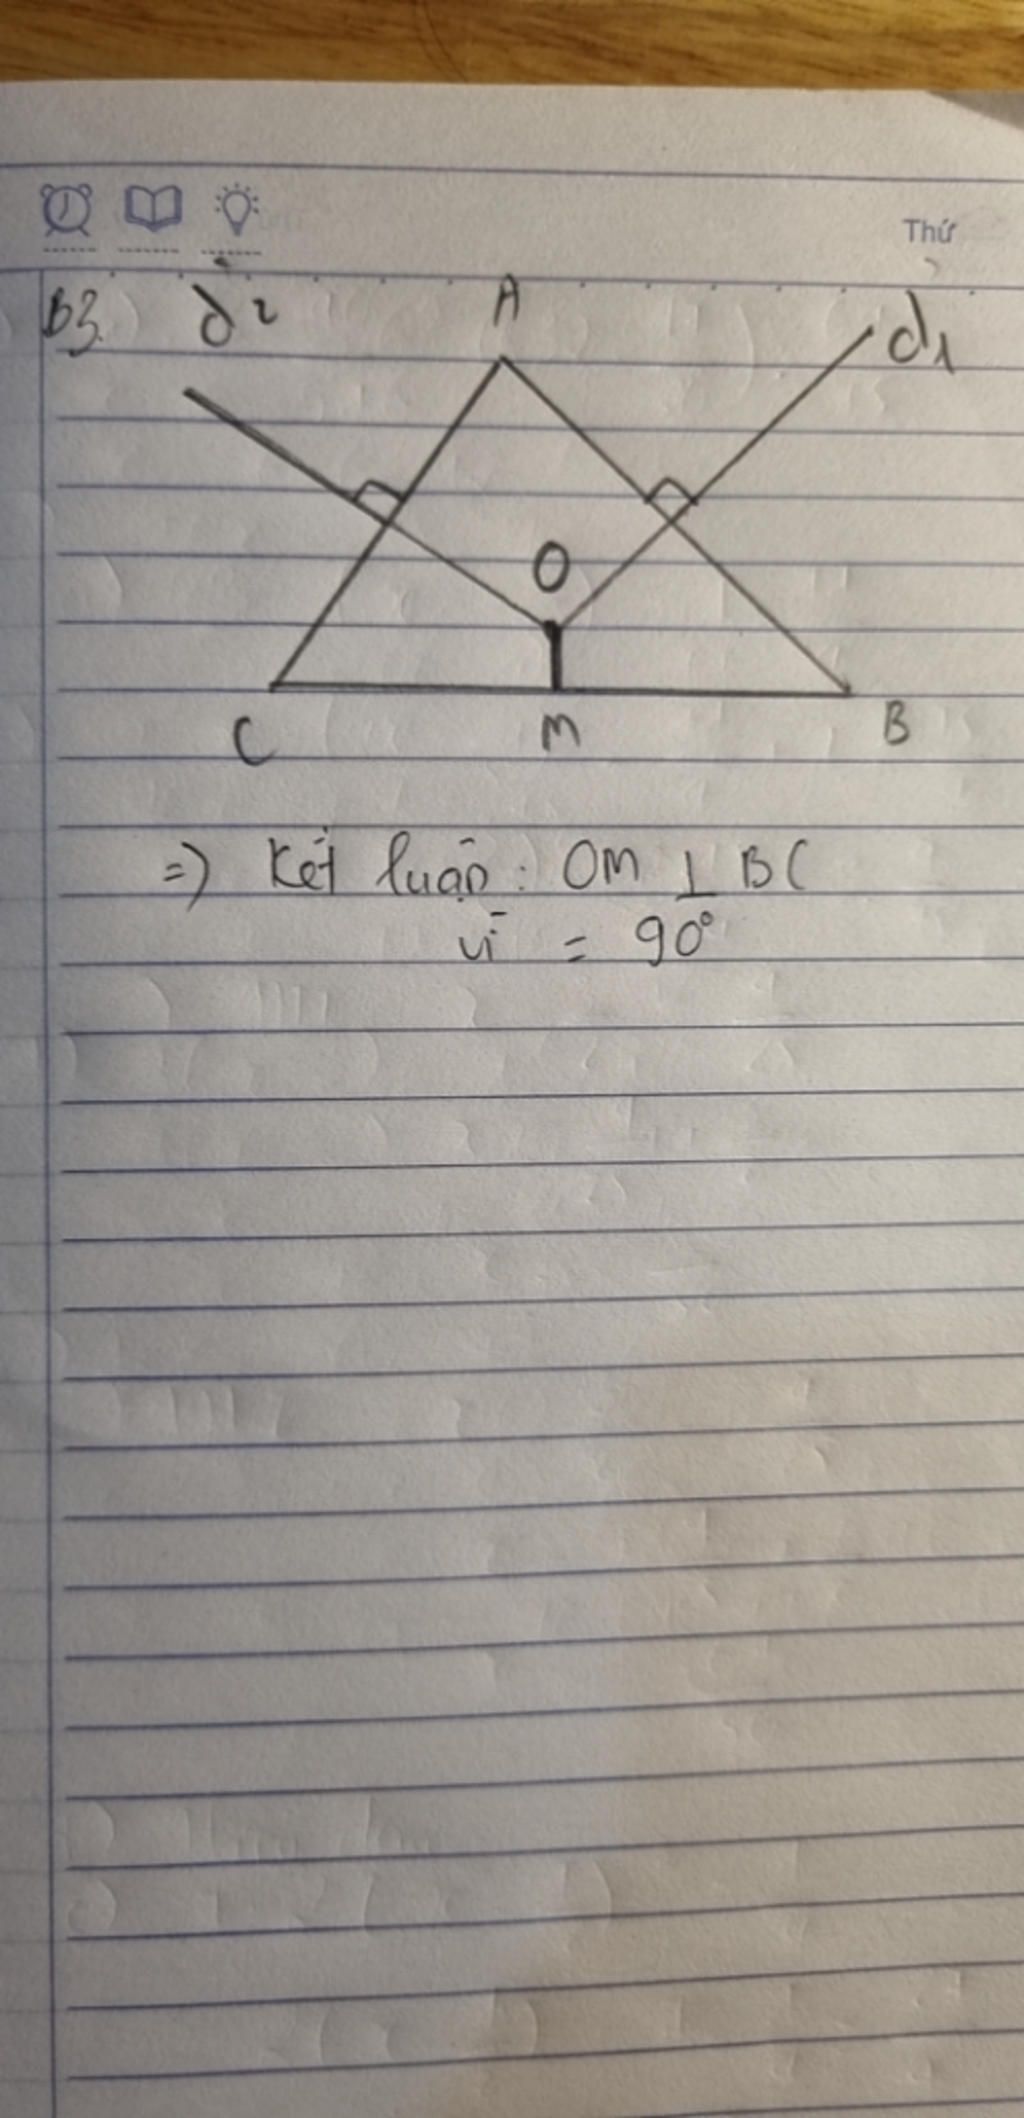 Thứ
B3.
d2
A
d1
O
C
M
B
=) Kết luận: OM ⊥ BC
vì = 90°